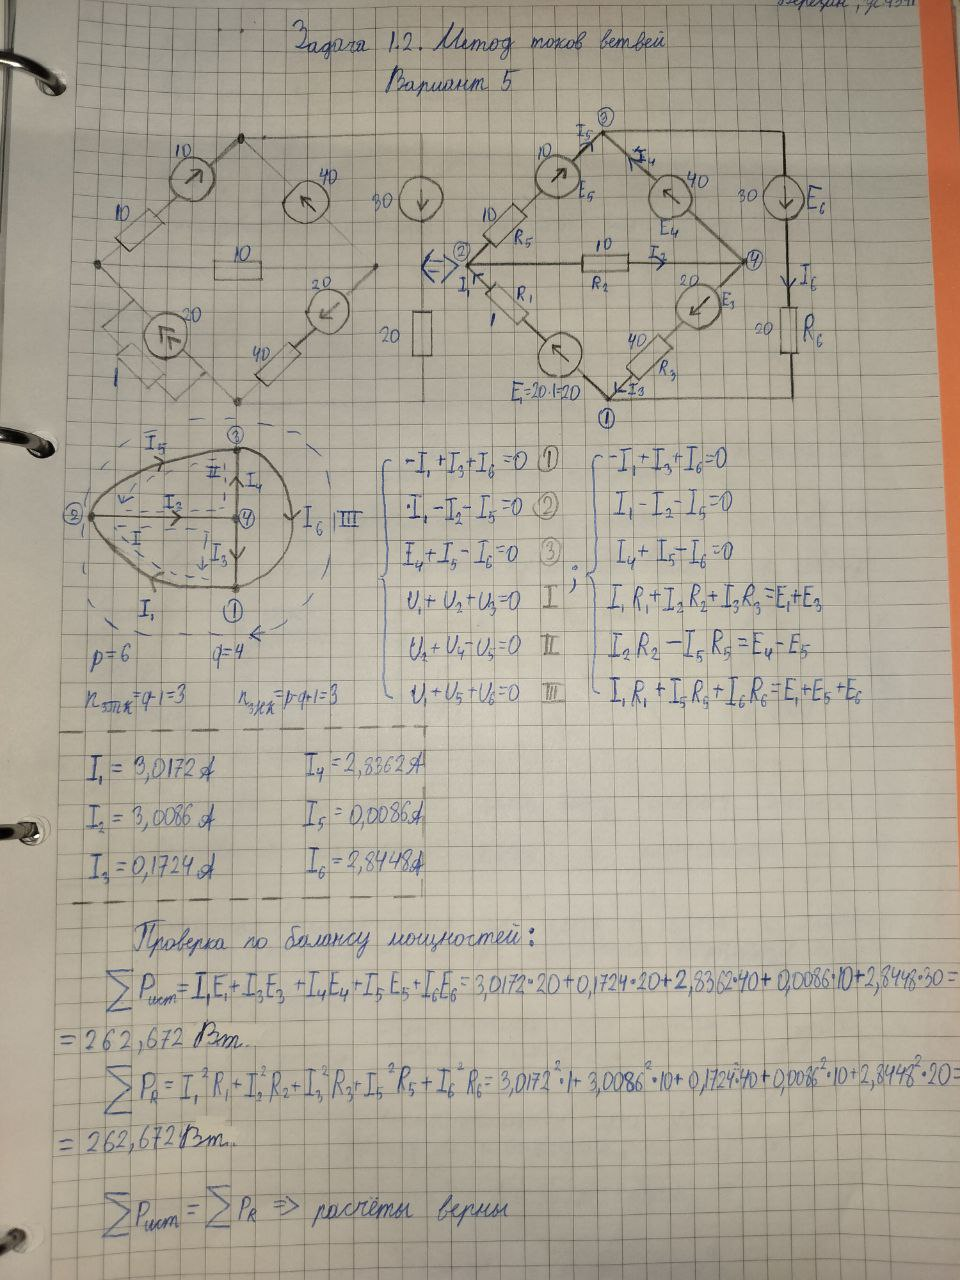 Задача 1.2. Метод токов ветвей
Вариант 5
10
40
10
30
10
20
20
40
20
1
③
I5
I4
10
40
E5
E4
30
E6
10
R5
②
10
I2
④
R2
I1
R1
1
20
E3
I6
40
R3
20
R6
E1=20·1=20
I3
①
⇔
③
I5
II
I4
②
I2
④
I6
III
I
I3
I1
①
p=6 q=4
nзтк=q-1=3 nзнк=p-q+1=3
-I1+I3+I6=0 ①
·I1-I2-I5=0 ②
I4+I5-I6=0 ③
U1+U2+U3=0 I
U2+U4-U5=0 II
U1+U5+U6=0 III
;
-I1+I3+I6=0
I1-I2-I5=0
I4+I5-I6=0
I1R1+I2R2+I3R3=E1+E3
I2R2-I5R5=E4-E5
I1R1+I5R5+I6R6=E1+E5+E6
I1=3,0172A I4=2,8362A
I2=3,0086A I5=0,0086A
I3=0,1724A I6=2,8448A
Проверка по балансу мощностей:
∑Pист=I1E1+I3E3+I4E4+I5E5+I6E6=3,0172·20+0,1724·20+2,8362·40+0,0086·10+2,8448·30=
=262,672 Вт.
∑PR=I1²R1+I2²R2+I3²R3+I5²R5+I6²R6=3,0172²·1+3,0086²·10+0,1724²·40+0,0086²·10+2,8448²·20=
=262,672 Вт.
∑Pист=∑PR => расчёты верны